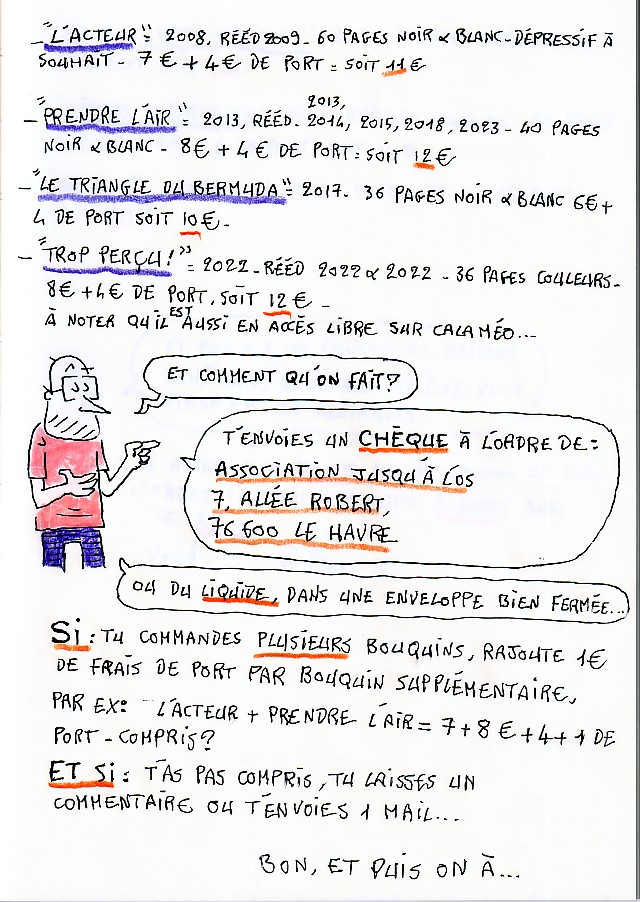 - "L'ACTEUR" = 2008. RÉÉD 2009 - 60 PAGES NOIR & BLANC - DÉPRESSIF À
SOUHAIT - 7 € + 4 € DE PORT = SOIT 11 €
- "PRENDRE L'AIR" = 2013, RÉÉD. 2013, 2014, 2015, 2018, 2023 - 40 PAGES
NOIR & BLANC - 8€ + 4 € DE PORT = SOIT 12 €
- "LE TRIANGLE DU BERMUDA" = 2017. 36 PAGES NOIR & BLANC 6€ +
4 DE PORT SOIT 10 € -
- "TROP PERÇU !" = 2022 - RÉÉD 2022 & 2022 - 36 PAGES COULEURS -
8€ + 4€ DE PORT, SOIT 12 € -
À NOTER QU'IL EST AUSSI EN ACCÈS LIBRE SUR CALAMÉO...
ET COMMENT QU'ON FAIT?
T'ENVOIES UN CHÈQUE À L'ORDRE DE :
ASSOCIATION JUSQU'À L'OS
7, ALLÉE ROBERT,
76 600 LE HAVRE
OU DU LIQUIDE, DANS UNE ENVELOPPE BIEN FERMÉE...
Si : TU COMMANDES PLUSIEURS BOUQUINS, RAJOUTE 1€
DE FRAIS DE PORT PAR BOUQUIN SUPPLÉMENTAIRE,
PAR EX : L'ACTEUR + PRENDRE L'AIR = 7 + 8 € + 4 + 1 DE
PORT - COMPRIS ?
ET Si : T'AS PAS COMPRIS, TU LAISSES UN
COMMENTAIRE OU T'ENVOIES 1 MAIL...
BON, ET PUIS ON À...